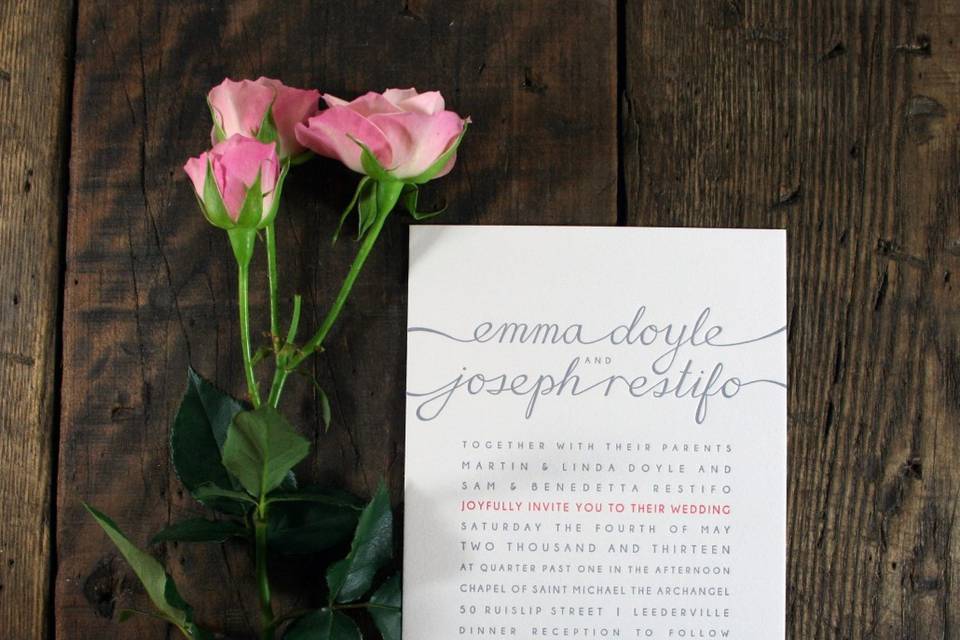 emma doyle
AND
joseph restifo
TOGETHER WITH THEIR PARENTS
MARTIN & LINDA DOYLE AND
SAM & BENEDETTA RESTIFO
JOYFULLY INVITE YOU TO THEIR WEDDING
SATURDAY THE FOURTH OF MAY
TWO THOUSAND AND THIRTEEN
AT QUARTER PAST ONE IN THE AFTERNOON
CHAPEL OF SAINT MICHAEL THE ARCHANGEL
50 RUISLIP STREET | LEEDERVILLE
DINNER RECEPTION TO FOLLOW